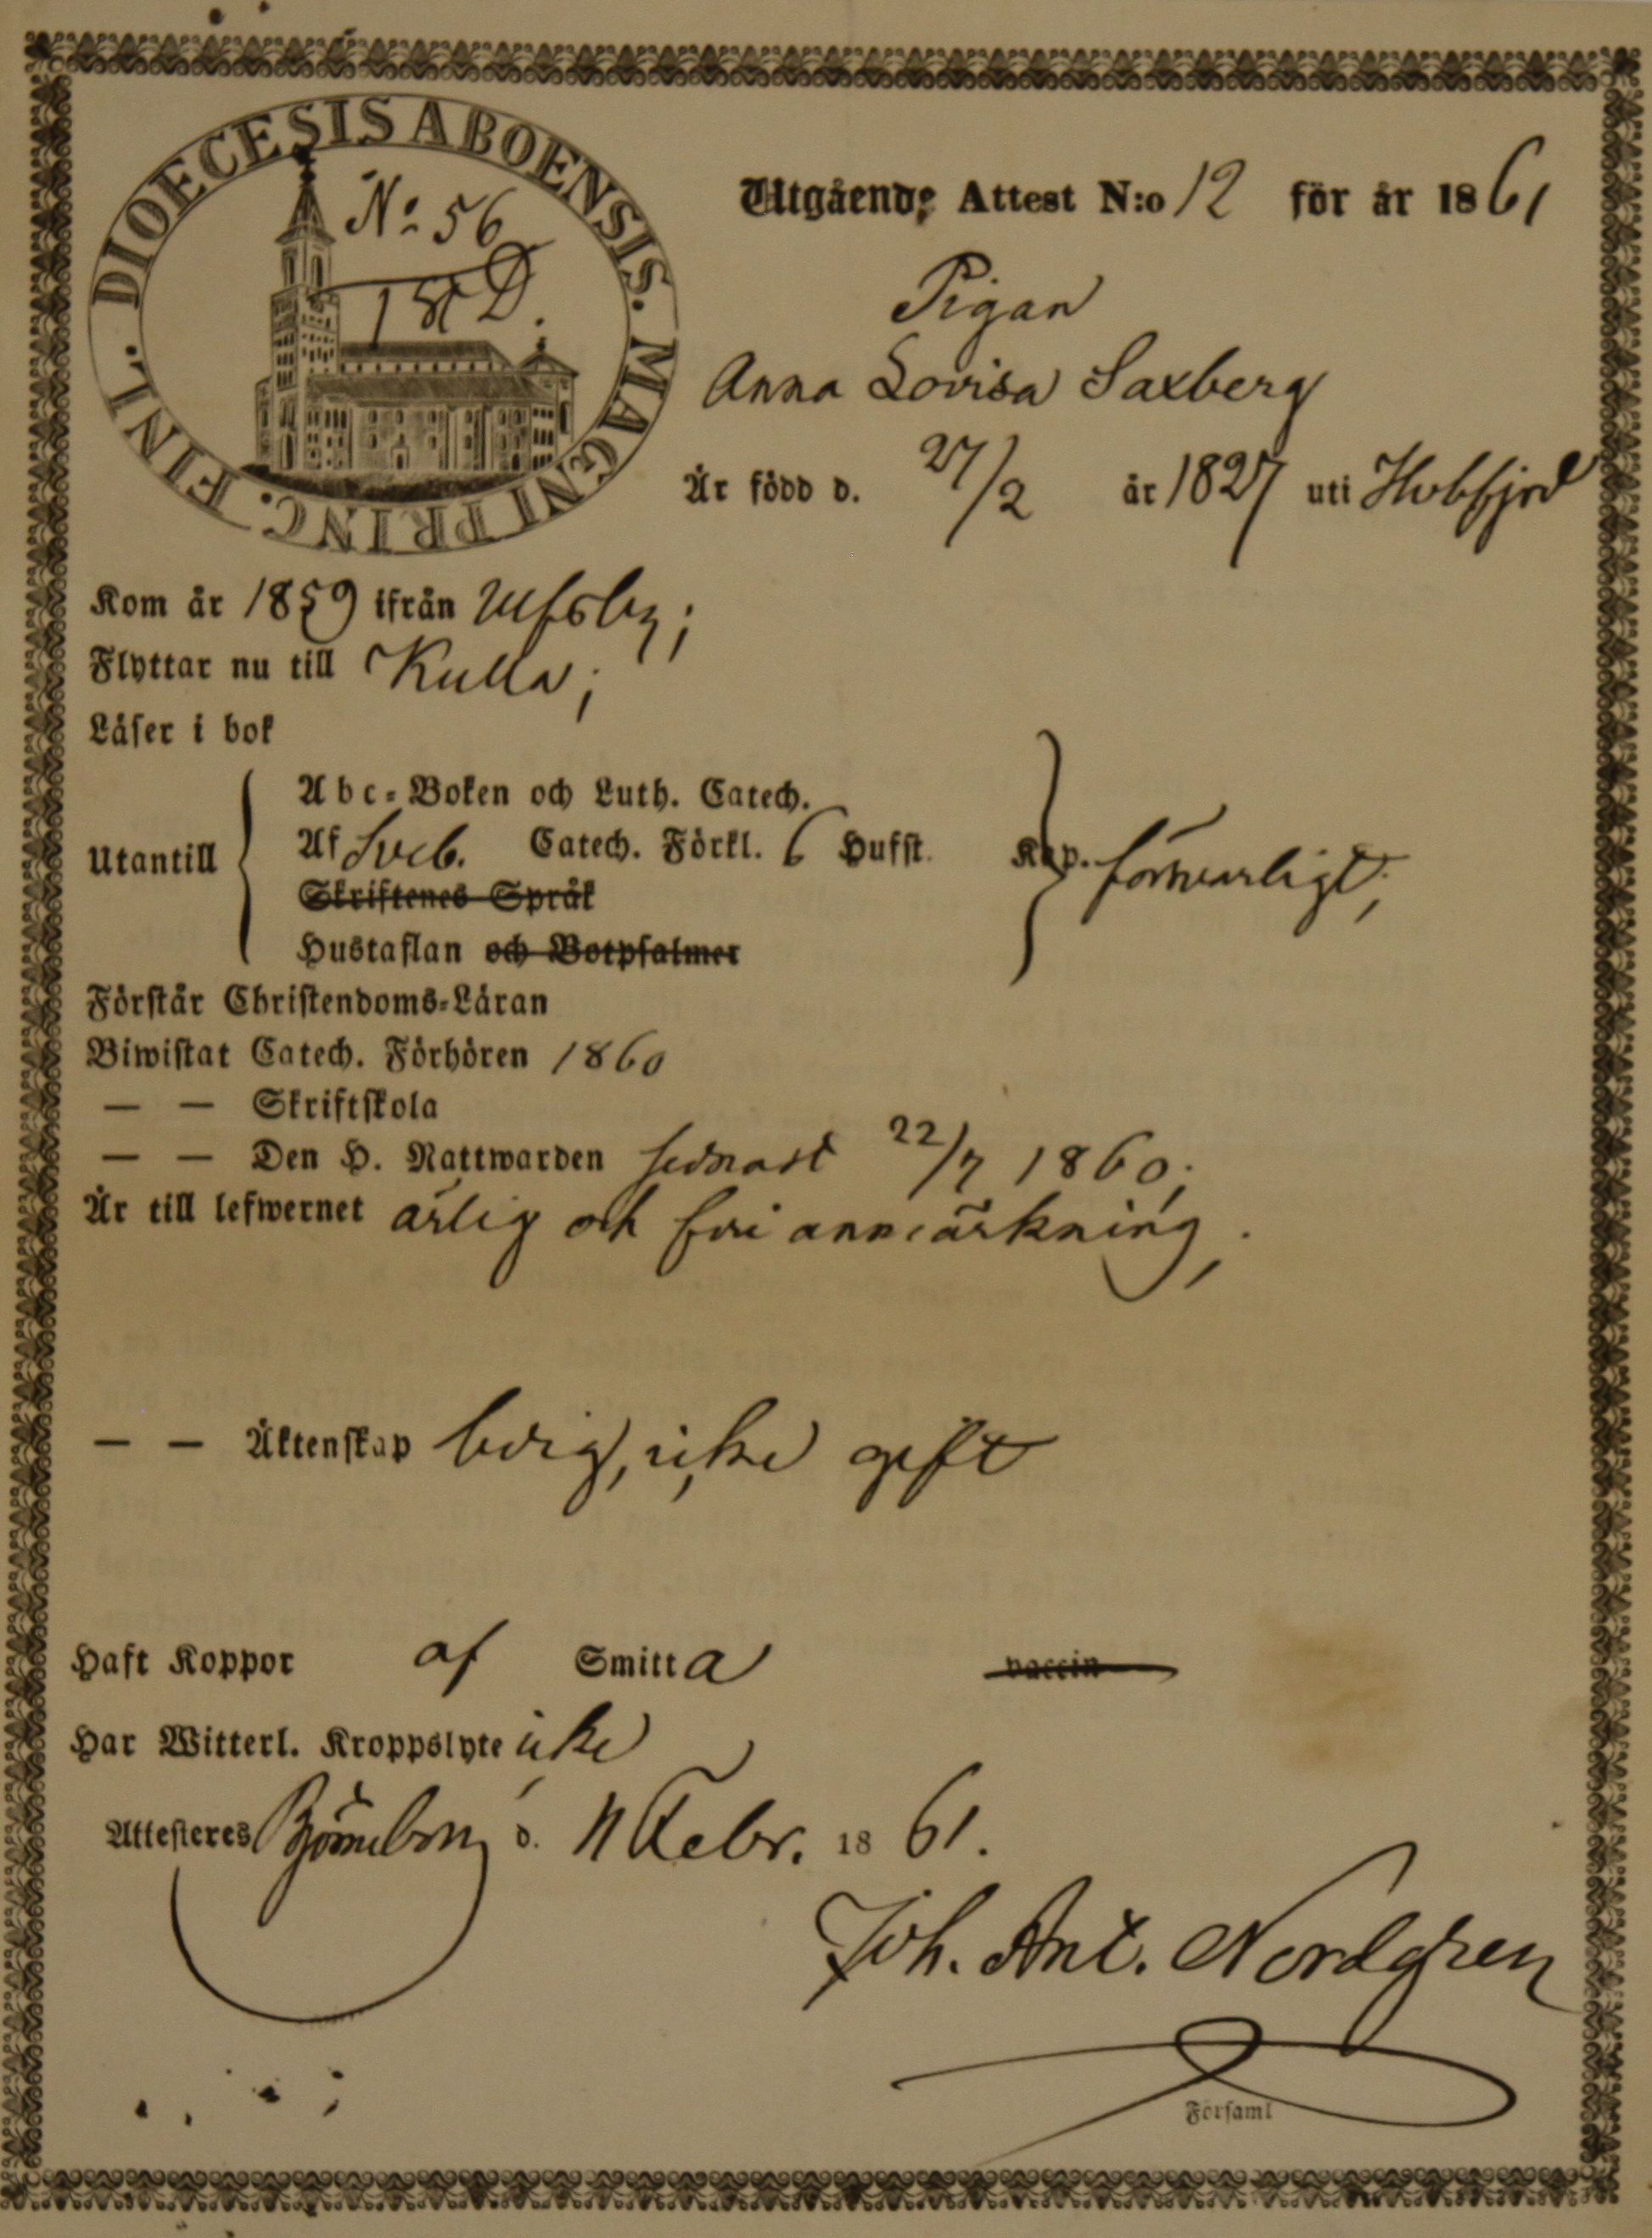 DIOECESIS ABOENSIS. MAGNI PRINC. FINL.
N:o 56
Utgående Attest N:o 12 för år 1861
Pigan
Anna Lovisa Saxberg
Är född d. 27/2 år 1827 uti
Kom år 1859 ifrån Ulfsby;
Flyttar nu till Kulla;
Läser i bok
Utantill
Abc-Boken och Luth. Catech.
Af Sveb. Catech. Förkl. 6 Hufst. Kap. försvarligt;
Skriftenes Språk
Hustaflan och Botpsalmer
Förstår Christendoms-Läran
Biwistat Catech. Förhören 1860
— — Skriftskola
— — Den H. Nattwarden sednast 22/7 1860;
Är till lefwernet ärlig och fri anmärkning,
— — Äktenskap ledig, icke gift
Haft Koppor af Smitta vaccin
Har Witterl. Kroppslyte icke
Attesteres Björneborg d. 11 Febr. 1861.
Joh. Ant. Nordgren
Församl